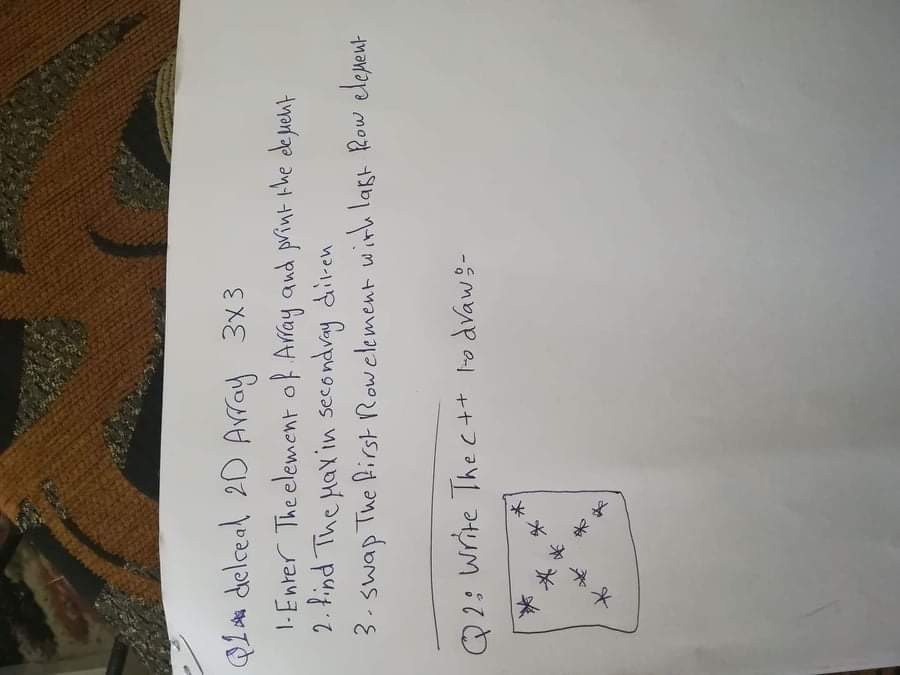 Q1 delceal 2D Array 3x3
1-Enter The element of Array and print the element
2. find The Max in secondray dilren
3. swap The first Row element with last Row element
Q2: Write The c++ to draw:-
* *
* *
*
* *
* *